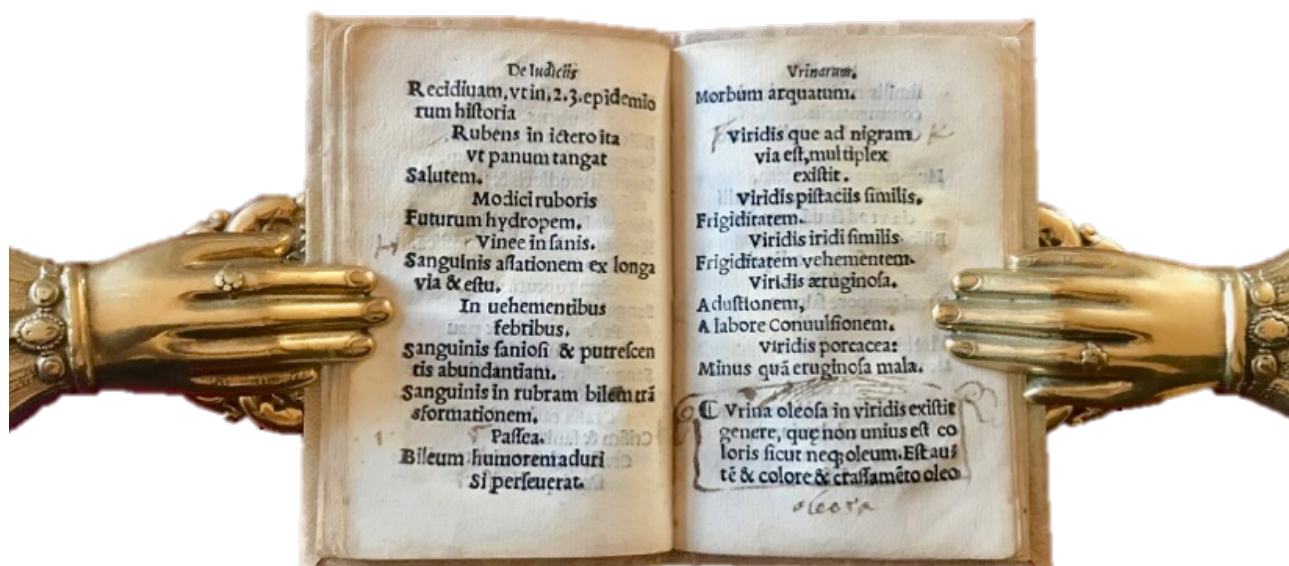 De Iudiciis
Recidiuam, vt in, 2.3. epidemio
rum historia
Rubens in ictero ita
vt panum tangat
Salutem.
Modici ruboris
Futurum hydropem.
Vinee in sanis.
Sanguinis assationem ex longa
via & estu.
In uehementibus
febribus.
Sanguinis saniosi & putrescen
tis abundantiam.
Sanguinis in rubram bilem trã
sformationem.
Passea.
Bileum humorem aduri
Si perseuerat.
Vrinarum.
Morbum arquatum.
viridis que ad nigram
via est, multiplex
existit.
viridis pistaciis similis.
Frigiditatem.
Viridis iridi similis
Frigiditatem vehementem.
Viridis æruginosa.
Adustionem,
A labore Conuulsionem.
viridis porracea:
Minus quã eruginosa mala.
☾ Vrina oleosa in viridis existit
genere, quę non unius est co
loris sicut neqꝫ oleum. Est aut
tẽ & colore & crassamẽto oleo
oleosa